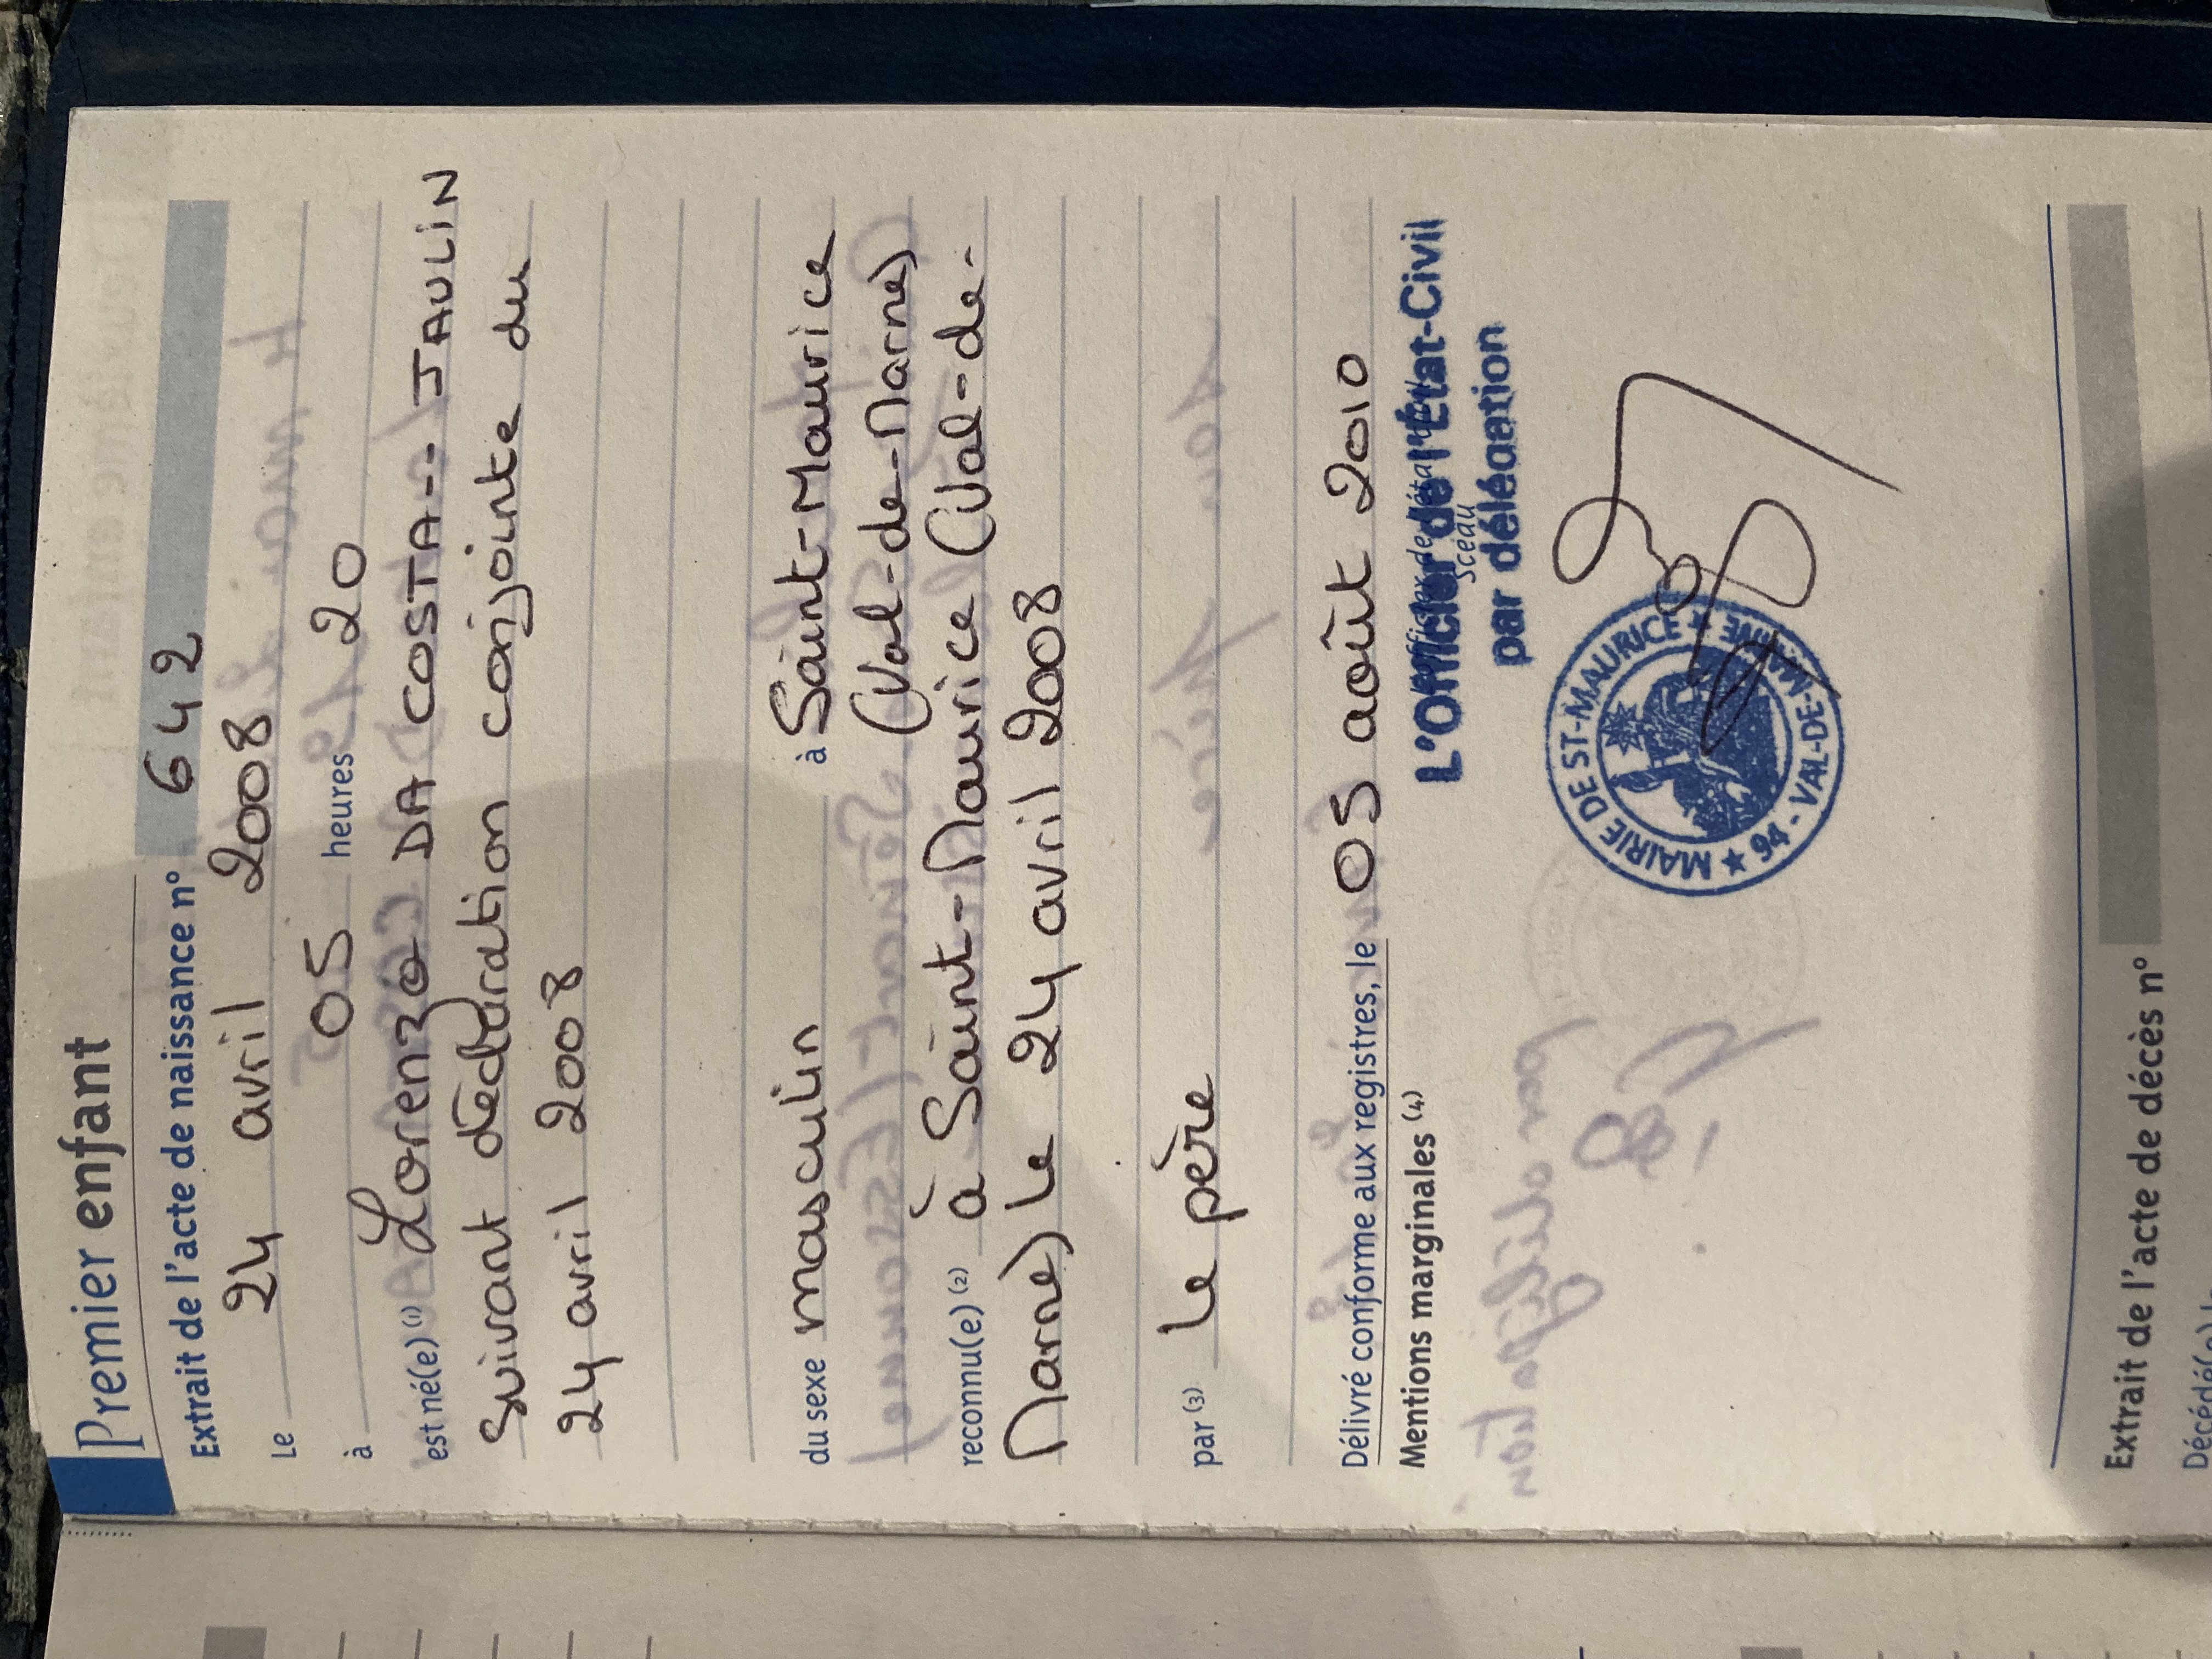 Premier enfant
Extrait de l'acte de naissance n° 642
Le 24 avril 2008
à 05 heures 20
est né(e) (1) Lorenzo DA COSTA -- JAULIN
Suivant déclaration conjointe du
24 avril 2008
du sexe masculin à Saint-Maurice
(Val-de-Marne)
reconnu(e) (2) à Saint-Maurice (Val-de-
Marne) le 24 avril 2008
par (3) le père
Délivré conforme aux registres, le 05 août 2010
Mentions marginales (4)
L'Officier de l'État-Civil
Sceau
par délégation
MAIRIE DE ST-MAURICE ★ 94 - VAL-DE-MARNE ★
Extrait de l'acte de décès n°
Décédé(e)